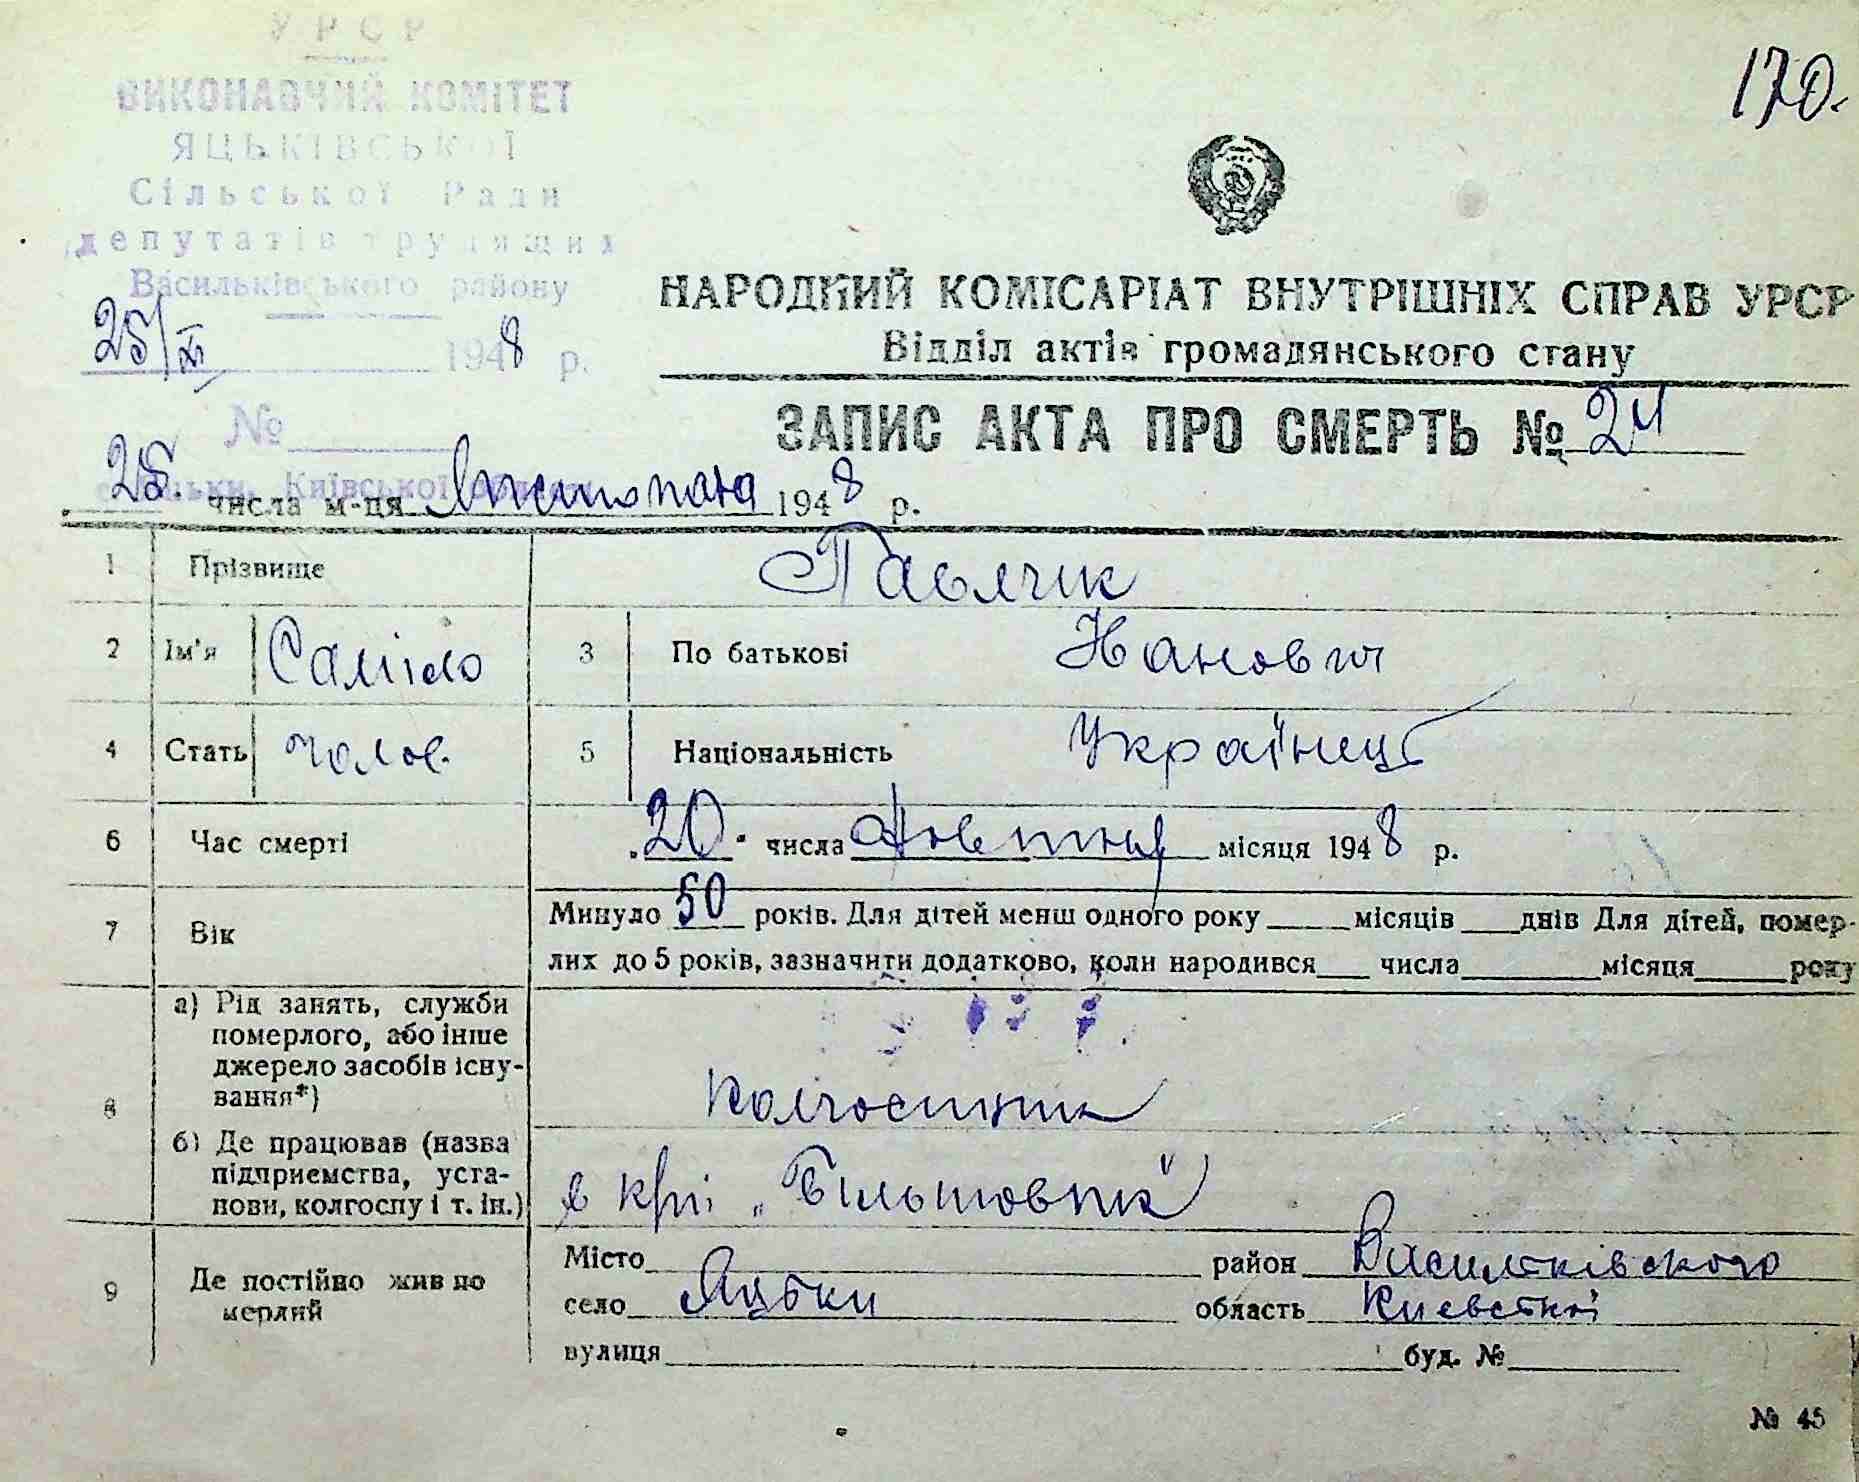 УРСР
170.
ВИКОНАВЧИЙ КОМІТЕТ
ЯЦЬКІВСЬКОЇ
Сільської Ради
депутатів трудящих
Васильківського району
25/XI 1948 р.
№
НАРОДНИЙ КОМІСАРІАТ ВНУТРІШНІХ СПРАВ УРСР
Відділ актів громадянського стану
ЗАПИС АКТА ПРО СМЕРТЬ № 24
с. Яцьки, Київської області
25. числа м-ця Листопада 1948 р.
1 Прізвище Павлчик
2 Ім'я 3 По батькові
4 Стать чолов. 5 Національність Українець
6 Час смерті 20 числа Жовтня місяця 1948 р.
7 Вік Минуло 50 років. Для дітей менш одного року ____ місяців ___ днів Для дітей, помер-
лих до 5 років, зазначити додатково, коли народився ___ числа ____ місяця ____ року
8 а) Рід занять, служби
померлого, або інше
джерело засобів існу-
вання*)
Колгоспник
б) Де працював (назва
підприємства, уста-
нови, колгоспу і т. ін.)
в к-рі „Більшовик"
9 Де постійно жив по
мерлий
Місто район Васильківского
село Яцьки область Киевскої
вулиця буд. №
№ 45